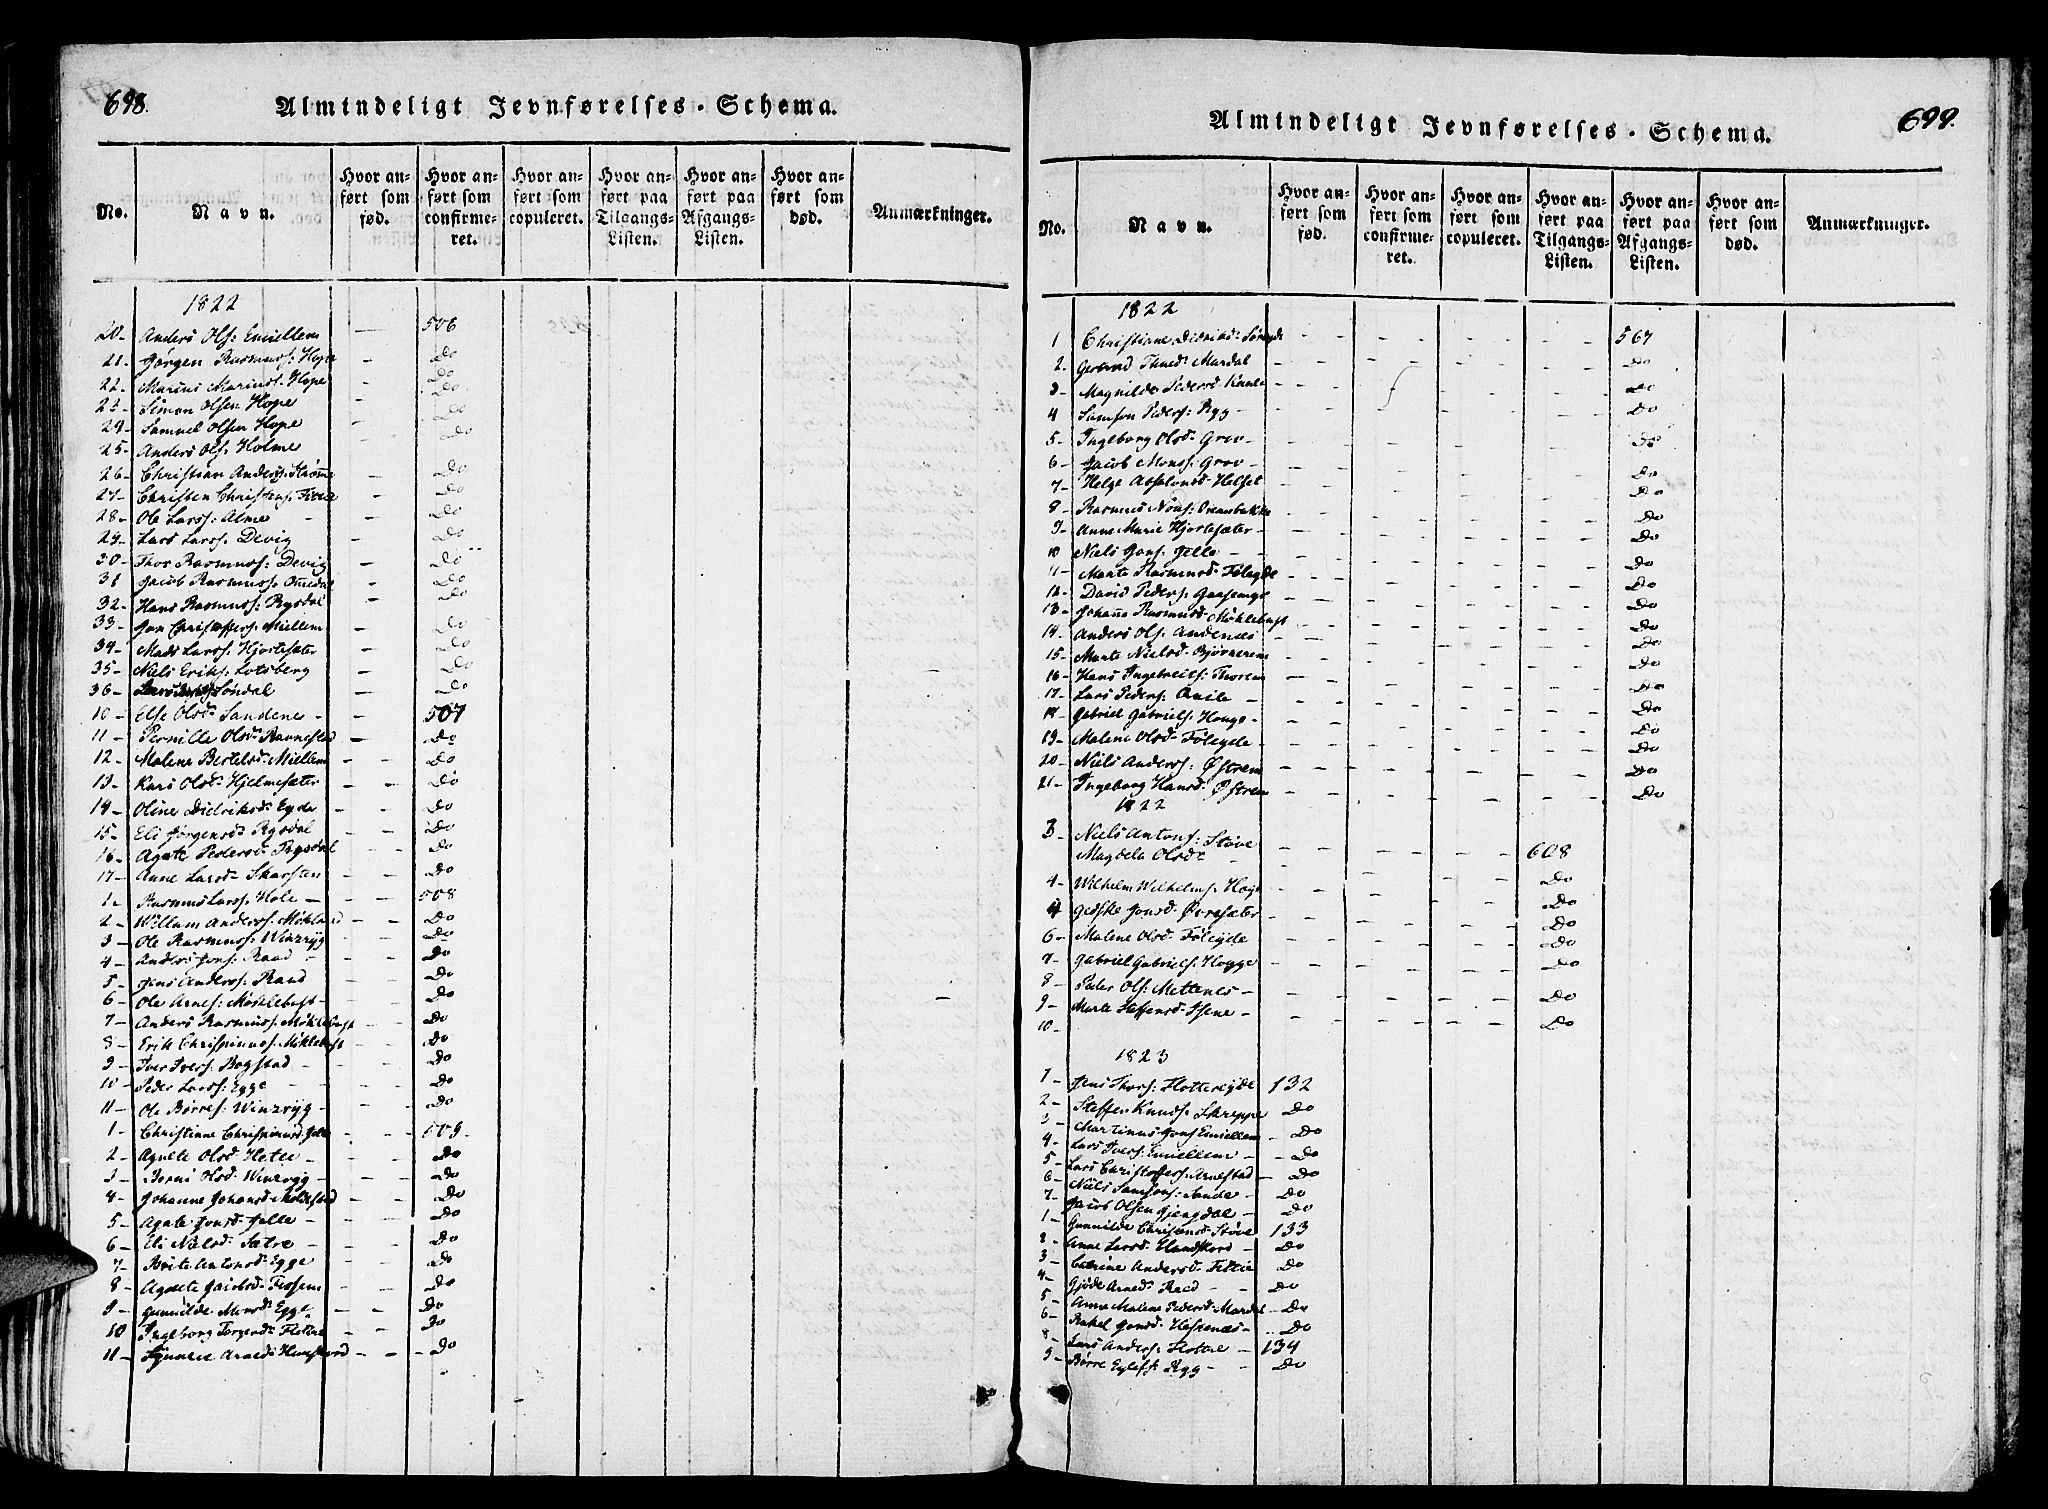 698.
Almindeligt Jevnførelses-Schema.
No.
Navn.
Hvor an-
ført som
fød.
Hvor an-
ført som
confirme-
ret.
Hvor an-
ført som
copuleret.
Hvor an-
ført paa
Tilgangs-
Listen.
Hvor an-
ført paa
Afgangs-
Listen.
Hvor an-
ført som
død.
Anmærkninger.
1822
20 - Anders Ols: Emellem — 506
21 - Jørgen Rasmuss: Hope - Do
22 - Marius Marius: Hope - Do
23 - Simon Olsen Hope - Do
24 - Samuel Olsen Hope - Do
25 - Anders Ols: Holme - Do
26 - Christian Anderss: Strømme - Do
27 - Christen Christens: - Do
28 - Ole Larss: Alme - Do
29 - Lars Larss: Devig - Do
30 - Thor Rasmuss: Devig - Do
31 Jacob Rasmuss: - Do
32 - Hans Rasmuss: Rygsdal - Do
33 - Jon Christoffers: Miellem - Do
34 - Mads Larss: Hjortesæter - Do
35 - Niels Eriks: Lotsberg - Do
36 - Søndal - Do
10 - Else Olsd: Sandene - 507
11 - Pernille Olsd: Ravnestad - Do
12 - Malene Bertelsd: Miellem - Do
13 - Kari Olsd: Hjelmesæter - Do
14 - Oline Didriksd: Eyde - Do
15 - Eli Jørgensd: Rygsdal - Do
16 - Agate Pedersd: Rygsdal - Do
17 - Anne Larsd: Skarsten - Do
1 - Rasmus Larss: Hole - 508
2 - Willum Anderss: Mikland - Do
3 - Ole Rasmuss: Winzryg - Do
4 - Anders Jons: Raad - Do
5 - Jens Anderss: Raad - Do
6 - Ole Arnes: Møklebust - Do
7 - Anders Rasmuss: Møklebust - Do
8 - Erik Chrispinuss: Miklebust - Do
9 - Iver Ivers: Bogstad - Do
10 - Peder Larss: Egge - Do
11 - Ole Børres: Winzryg - Do
1 - Christiane Chrispinusd: Jelle - 509
2 - Agnete Olsd: Hetle - Do
3 - Berni Olsd: Winzryg - Do
4 - Johanne Johansd: Moldestad - Do
5 - Agate Jonsd: Jelle - Do
6 - Eli Nielsd: Sætre - Do
7 - Brite Antonsd: Egge - Do
8 - Agnete Jacobsd: Fessem - Do
9 - Gunnilde Monsd: Egge - Do
10 Ingeborg Torgersd: - Do
11 - Synneve Arnesd: - Do
699.
Almindeligt Jevnførelses-Schema.
No.
Navn.
Hvor an-
ført som
fød.
Hvor an-
ført som
confirme-
ret.
Hvor an-
ført som
copuleret.
Hvor an-
ført paa
Tilgangs-
Listen.
Hvor an-
ført paa
Afgangs-
Listen.
Hvor an-
ført som
død.
Anmærkninger.
1822
1 Christiane Didriksd: 567
2 - Mardal - Do
3 - Magnilde Pedersd: - Do
4 Samson Peders: Rygg - Do
5 - Ingeborg Olsd: Grov - Do
6 - Jacob Monss: Grov - Do
7 - Helge Assalonsd: Helset - Do
8 Rasmus - Do
9 - Anne Marie Hjortesæter - Do
10 Niels Jons: Jelle - Do
11 - Marte Rasmusd: Føleyde - Do
12 - David Peders: - Do
13 - Johanne Rasmusd: Møklebust - Do
14 - Anders Ols: Andenæs - Do
15 - Marte Nielsd: Bjørnerem - Do
16 - Hans Ingebreits: Thorem - Do
17 - Lars Peders: - Do
18 - Gabriel Gabriels: Houge - Do
19 - Malene Olsd: Føleyde - Do
20 - Niels Anderss: Østrem - Do
21 - Ingeborg Hansd: Østrem - Do
1822
3 - Niels Antons: Støve
Magdela Olsd: - 608
4 - Wilhelm Wilhelms: Hogs - Do
Gedske Jonsd: Øvresæter - Do
6 - Malene Olsd: Føleyde - Do
7 - Gabriel Gabriels: Hogge - Do
8 - Peder Ols: Mettenes - Do
9 - Marte Steffensd: - Do
10 -
1823
1 - Jens Thors: Flottereyde 132
2 - Steffen Knuds: Skreppe Do
3 - Martinus Jons: Emiellem - Do
4 - Lars Ivers: Emiellem - Do
5 - Lars Christoffers: Arnestad - Do
6 - Niels Samsons: Sande - Do
7 - Jacob Olsen Gjengdal - Do
1 - Gunnilde Christensd: Støve 133
2 - Anne Larsd: - Do
3 - Catrine Andersd: Do
4 - Gjøde Arnesd: Raed - Do
5 - Anne Malene Pedersd: Mardal - Do
6 - Rakel Jonsd: Hestenæs - Do
8 - Lars Anderss: 134
9 - Børre Eylefs: Rygg - Do